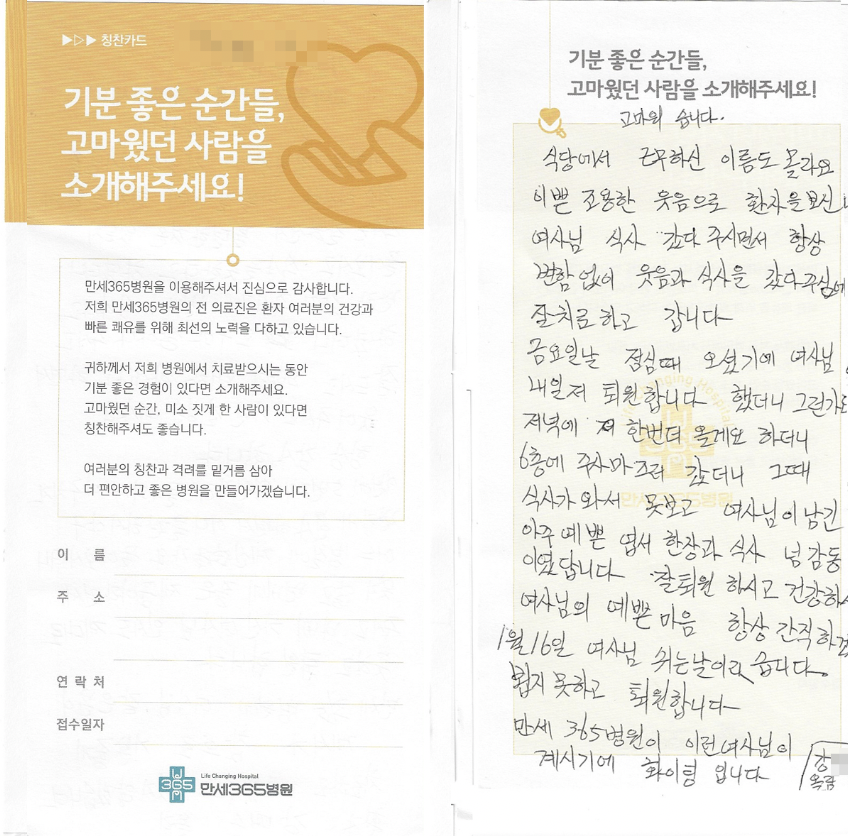 ▶▷▶ 칭찬카드
기분 좋은 순간들,
고마웠던 사람을
소개해주세요!
만세365병원을 이용해주셔서 진심으로 감사합니다.
저희 만세365병원의 전 의료진은 환자 여러분의 건강과
빠른 쾌유를 위해 최선의 노력을 다하고 있습니다.
귀하께서 저희 병원에서 치료받으시는 동안
기분 좋은 경험이 있다면 소개해주세요.
고마웠던 순간, 미소 짓게 한 사람이 있다면
칭찬해주셔도 좋습니다.
여러분의 칭찬과 격려를 밑거름 삼아
더 편안하고 좋은 병원을 만들어가겠습니다.
이 름
주 소
연 락 처
접수일자
365
Life Changing Hospital
만세365병원
기분 좋은 순간들,
고마웠던 사람을 소개해주세요!
고마워 습니다.
식당에서 근무하신 이름도 몰라요
이쁜 조용한 웃음으로 환자을 보신
여사님 식사 갔다 주시면서 항상
변함 없이 웃음과 식사을 갔다주심에
잘치료하고 갑니다
금요일날 점심때 오셨기에 여사님
내일 저 퇴원합니다 했더니 그런가요
저녁에 저 한번더 올게요 하더니
6층에 주사마즈러 갔더니 그때
식사가 와서 못보고 여사님이 남긴
아주 예쁜 엽서 한장과 식사 넘 감동
이였답니다 잘퇴원 하시고 건강하시
여사님의 예쁜 마음 항상 간직하겠
1월16일 여사님 쉬는날이라 습니다.
뵙지 못하고 퇴원합니다
만세 365병원이 이런여사님이
계시기에 화이팅 입니다
강